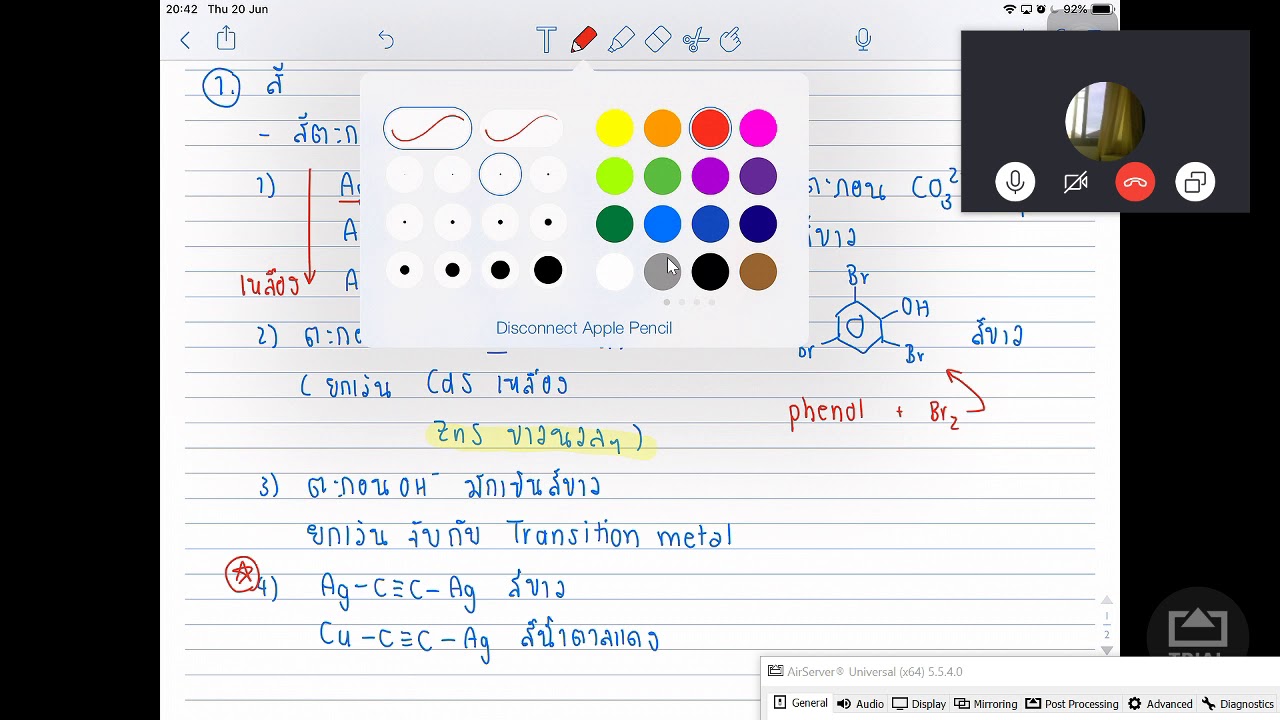 20:42 Thu 20 Jun 92%
1. สี
- สีตะก
1)
ตะกอน CO₃²
สีขาว
เหลือง
2) ตะก
Br
OH
Br
Br
สีขาว
Disconnect Apple Pencil
( ยกเว้น CdS เหลือง
phenol + Br₂
ZnS ขาวนวลๆ )
3) ตะกอน OH⁻ มักเป็นสีขาว
ยกเว้น จับกับ Transition metal
4) Ag-C≡C-Ag สีขาว
Cu-C≡C-Ag สีน้ำตาลแดง
1
2
TRIAL
AirServer® Universal (x64) 5.5.4.0
General Audio Display Mirroring Post Processing Advanced Diagnostics